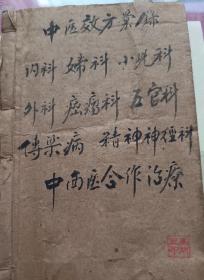 中医效方彙錄
内科 婦科 小児科
外科 癌瘤科 五官科
傳染病 精神神經科
中西医合作治療